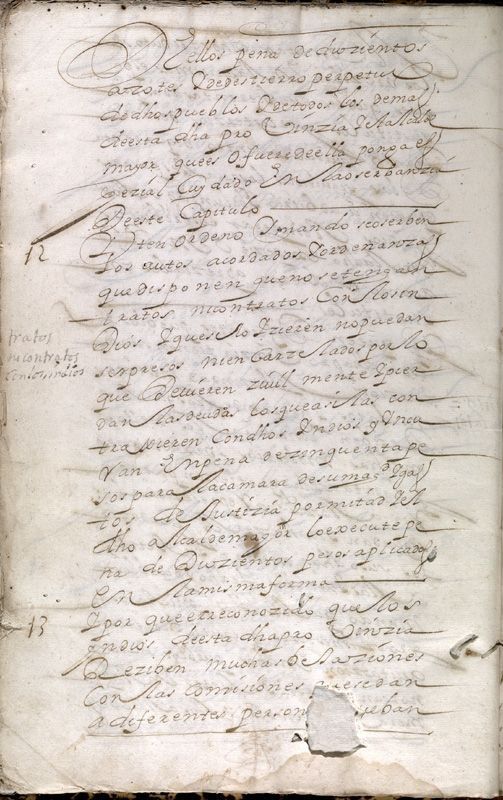 Dellos pena de duzientos
azotes Y de destierro perpetuo
de dhos pueblos Y de todos los demas
de esta dha provinzia Y el Alcalde
mayor que es o fuere de ella ponga es
pezial Cuydado En la oserbanzia
De este Capitulo
12 Yten ordeno Y mando se oserben
los autos acordados Y ordenanzas
que disponen que no se tengan
tratos ni contratos Con los in
Dios Y que si lo Yzieren no puedan
ser presos ni en Carzelados por lo
que Devieren zivil mente Y pier
dan las deudas los que asi las con
traxieren Con dhos Yndios Y Yncu
rran En pena de zinquenta pe
sos para la camara de su magd Y gas
tos de Justizia por mitad Y el
dho Alcalde mayor lo execute pe
na de Duzientos pesos aplicados
En la misma forma
13 Y por que e rreconozido que los
Yndios de esta dha provinzia
Reziben muchas bejaziones
Con las comisiones que se dan
a diferentes person ueban
tratos
ni contratos
con los indios